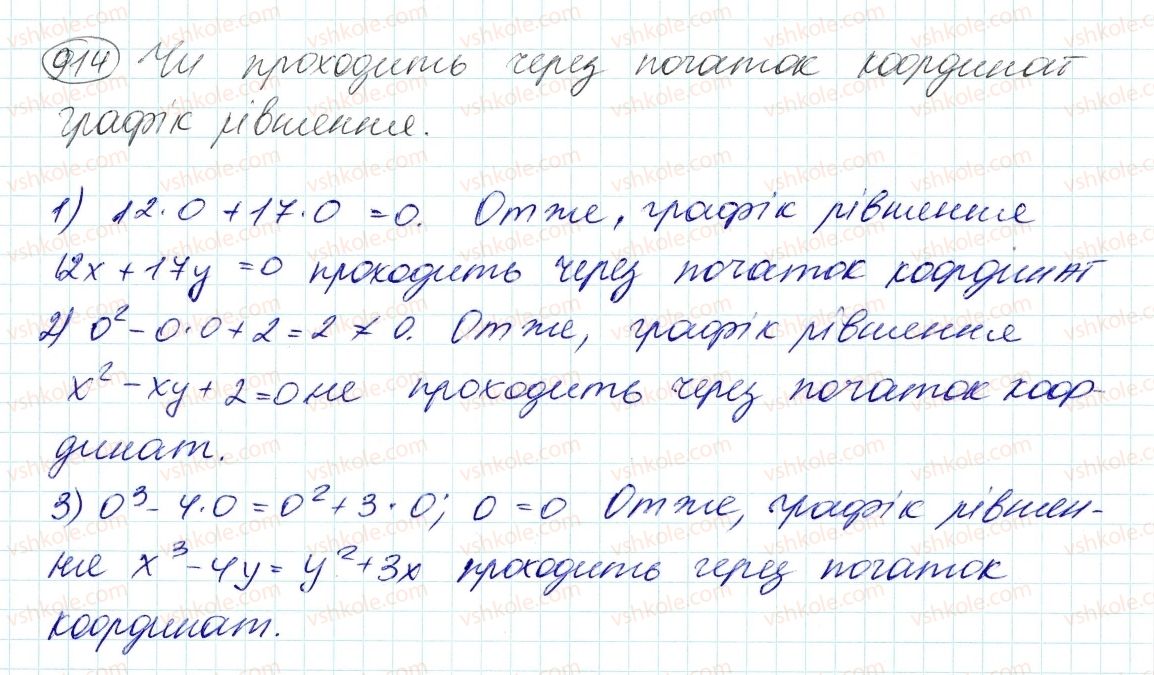 914 Чи проходить через початок координат
графік рівняння.
1) 12·0 + 17·0 = 0. Отже, графік рівняння
12x + 17y = 0 проходить через початок координат
2) 0² - 0·0 + 2 = 2 ≠ 0. Отже, графік рівняння
x² - xy + 2 = 0 не проходить через початок коор-
динат.
3) 0³ - 4·0 = 0² + 3·0; 0 = 0 Отже, графік рівнян-
ня x³ - 4y = y² + 3x проходить через початок
координат.